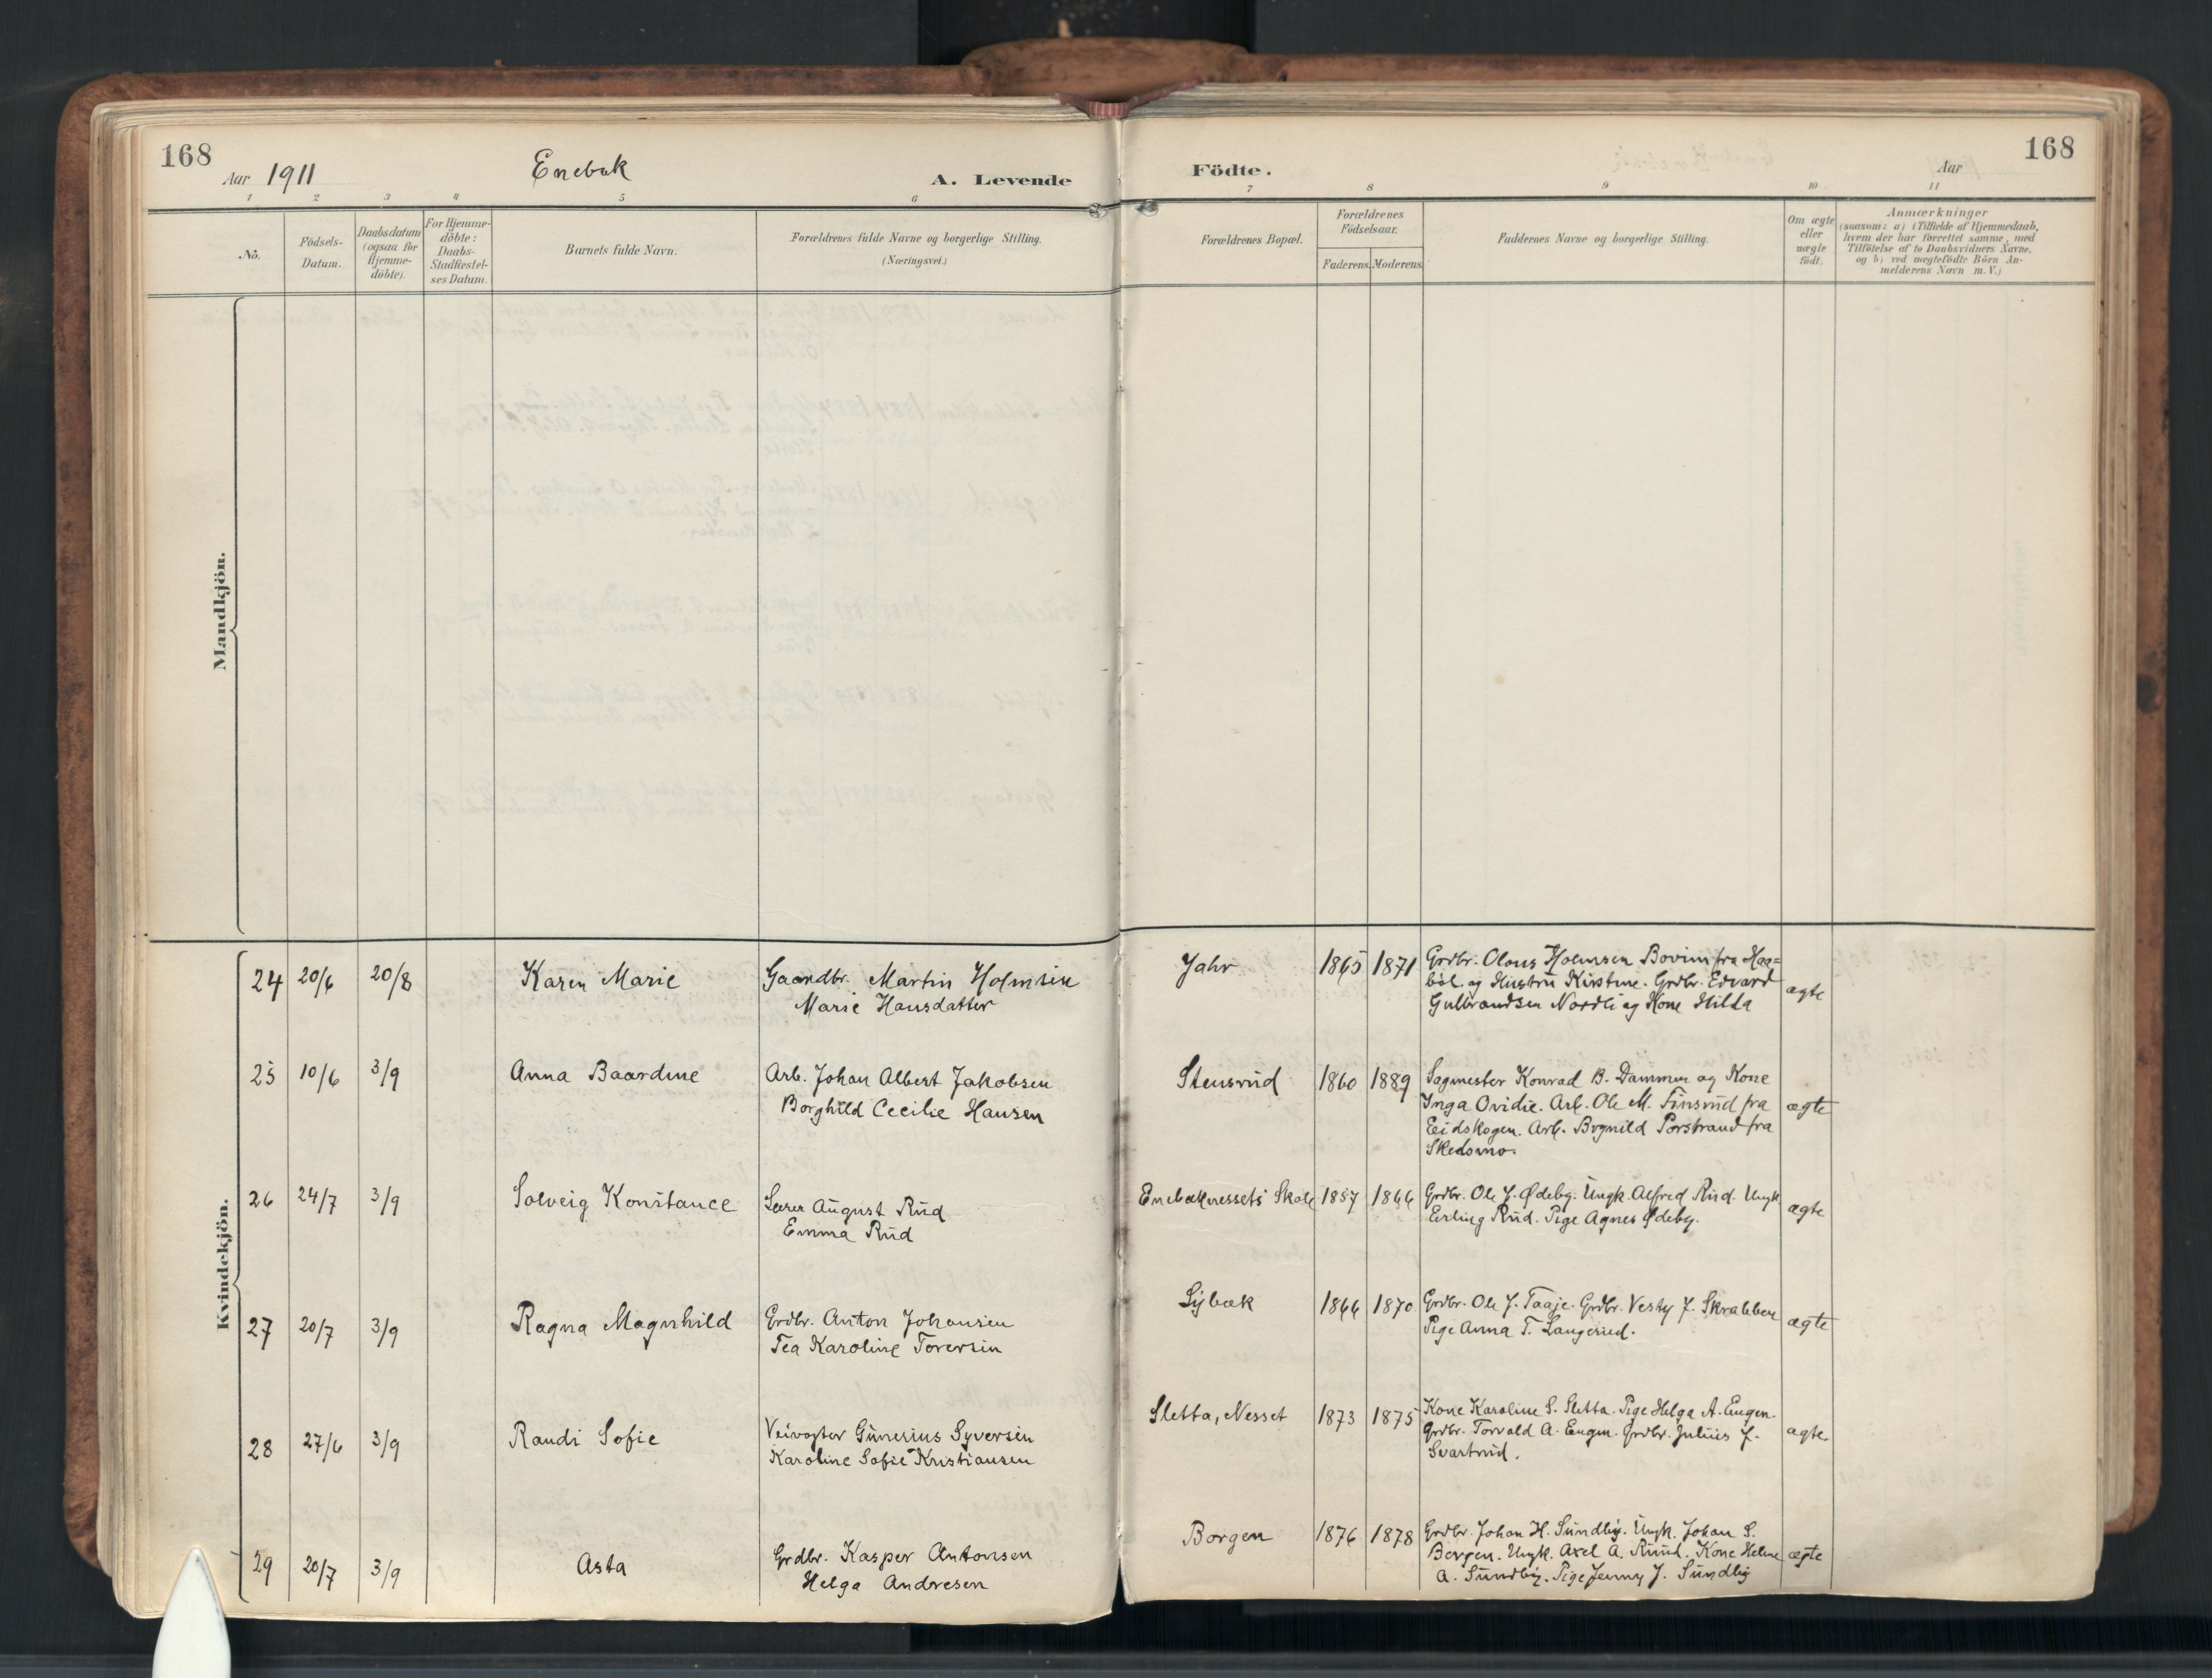 168
Aar 1911
Enebak
A. Levende
Födte.
Aar
168
1 2 3 4 5 6 7 8 9 10 11
No.
Födsels-
Datum.
Daabsdatum
(ogsaa for
Hjemme-
döbte).
For Hjemme-
döbte:
Daabs-
Stadfæstel-
ses Datum.
Barnets fulde Navn.
Forældrenes fulde Navne og borgerlige Stilling.
(Næringsvei.)
Forældrenes Bopæl.
Forældrenes
Födselsaar.
Faderens. Moderens.
Faddernes Navne og borgerlige Stilling.
Om ægte
eller
uægte
födt.
Anmærkninger
(saasom: a) i Tilfælde af Hjemmedaab,
hvem der har forrettet samme, med
Tilföielse af to Daabsvidners Navne.
og b) ved uægtefödte Börn An-
melderens Navn m.V.)
Mandkjön.
Kvindekjön.
24 20/6 20/8 Karen Marie
Gaardbr. Martin Holmsen
Marie Hansdatter
Jahr 1865 1871
Grdbr. Olaus Holmsen Bovim fra Haa=
böl. og Hustru Kirstine. Grdbr. Edvard
Gulbrandsen Nordli og Kone Hilda
ægte
25 10/6 3/9 Anna Baardine
Arb. Johan Albert Jakobsen
Borghild Cecilie Hansen
Stensrud 1860 1889
Sagmester Konrad B. Dammen og Kone
Inga Ovidie. Arb. Ole M. Finsrud fra
Eidskogen. Arb. Porstrand fra
Skedsmo.
ægte
26 24/7 3/9 Solveig Konstance
Lærer August Rud
Emma Rud
Enebaknessets Skole 1857 1866
Grdbr. Ole J. Ødeby. Ungk. Alfred Rud. Ungk
Erling Rud. Pige Agnes Ødeby.
ægte
27 20/7 3/9 Ragna Magnhild
Grdbr. Anton Johansen
Tea Karoline Torersen
Sybæk 1866 1870
Grdbr. Ole J. Taaje. Grdbr. Vesty J. Skrabben
Pige Anna T. Langerud.
ægte
28 27/6 3/9 Randi Sofie
Veivogter Gunerius Syversen
Karoline Sofie Kristiansen
Sletta, Nesset 1873 1875
Kone Karoline S. Sletta. Pige Helga A. Engen.
Grdbr. Torvald A. Engen. Grdbr. Julius J.
Svartrud.
ægte.
29 20/7 3/9 Asta
Grdbr. Kasper Antonsen
Helga Andresen
Borgen 1876 1878
Grdbr. Johan H. Sundby. Ungk. Johan S.
Borgen. Ungk. Axel A. Ruud. Kone Helene
A. Sundby. Pige Jenny J. Sundby
ægte